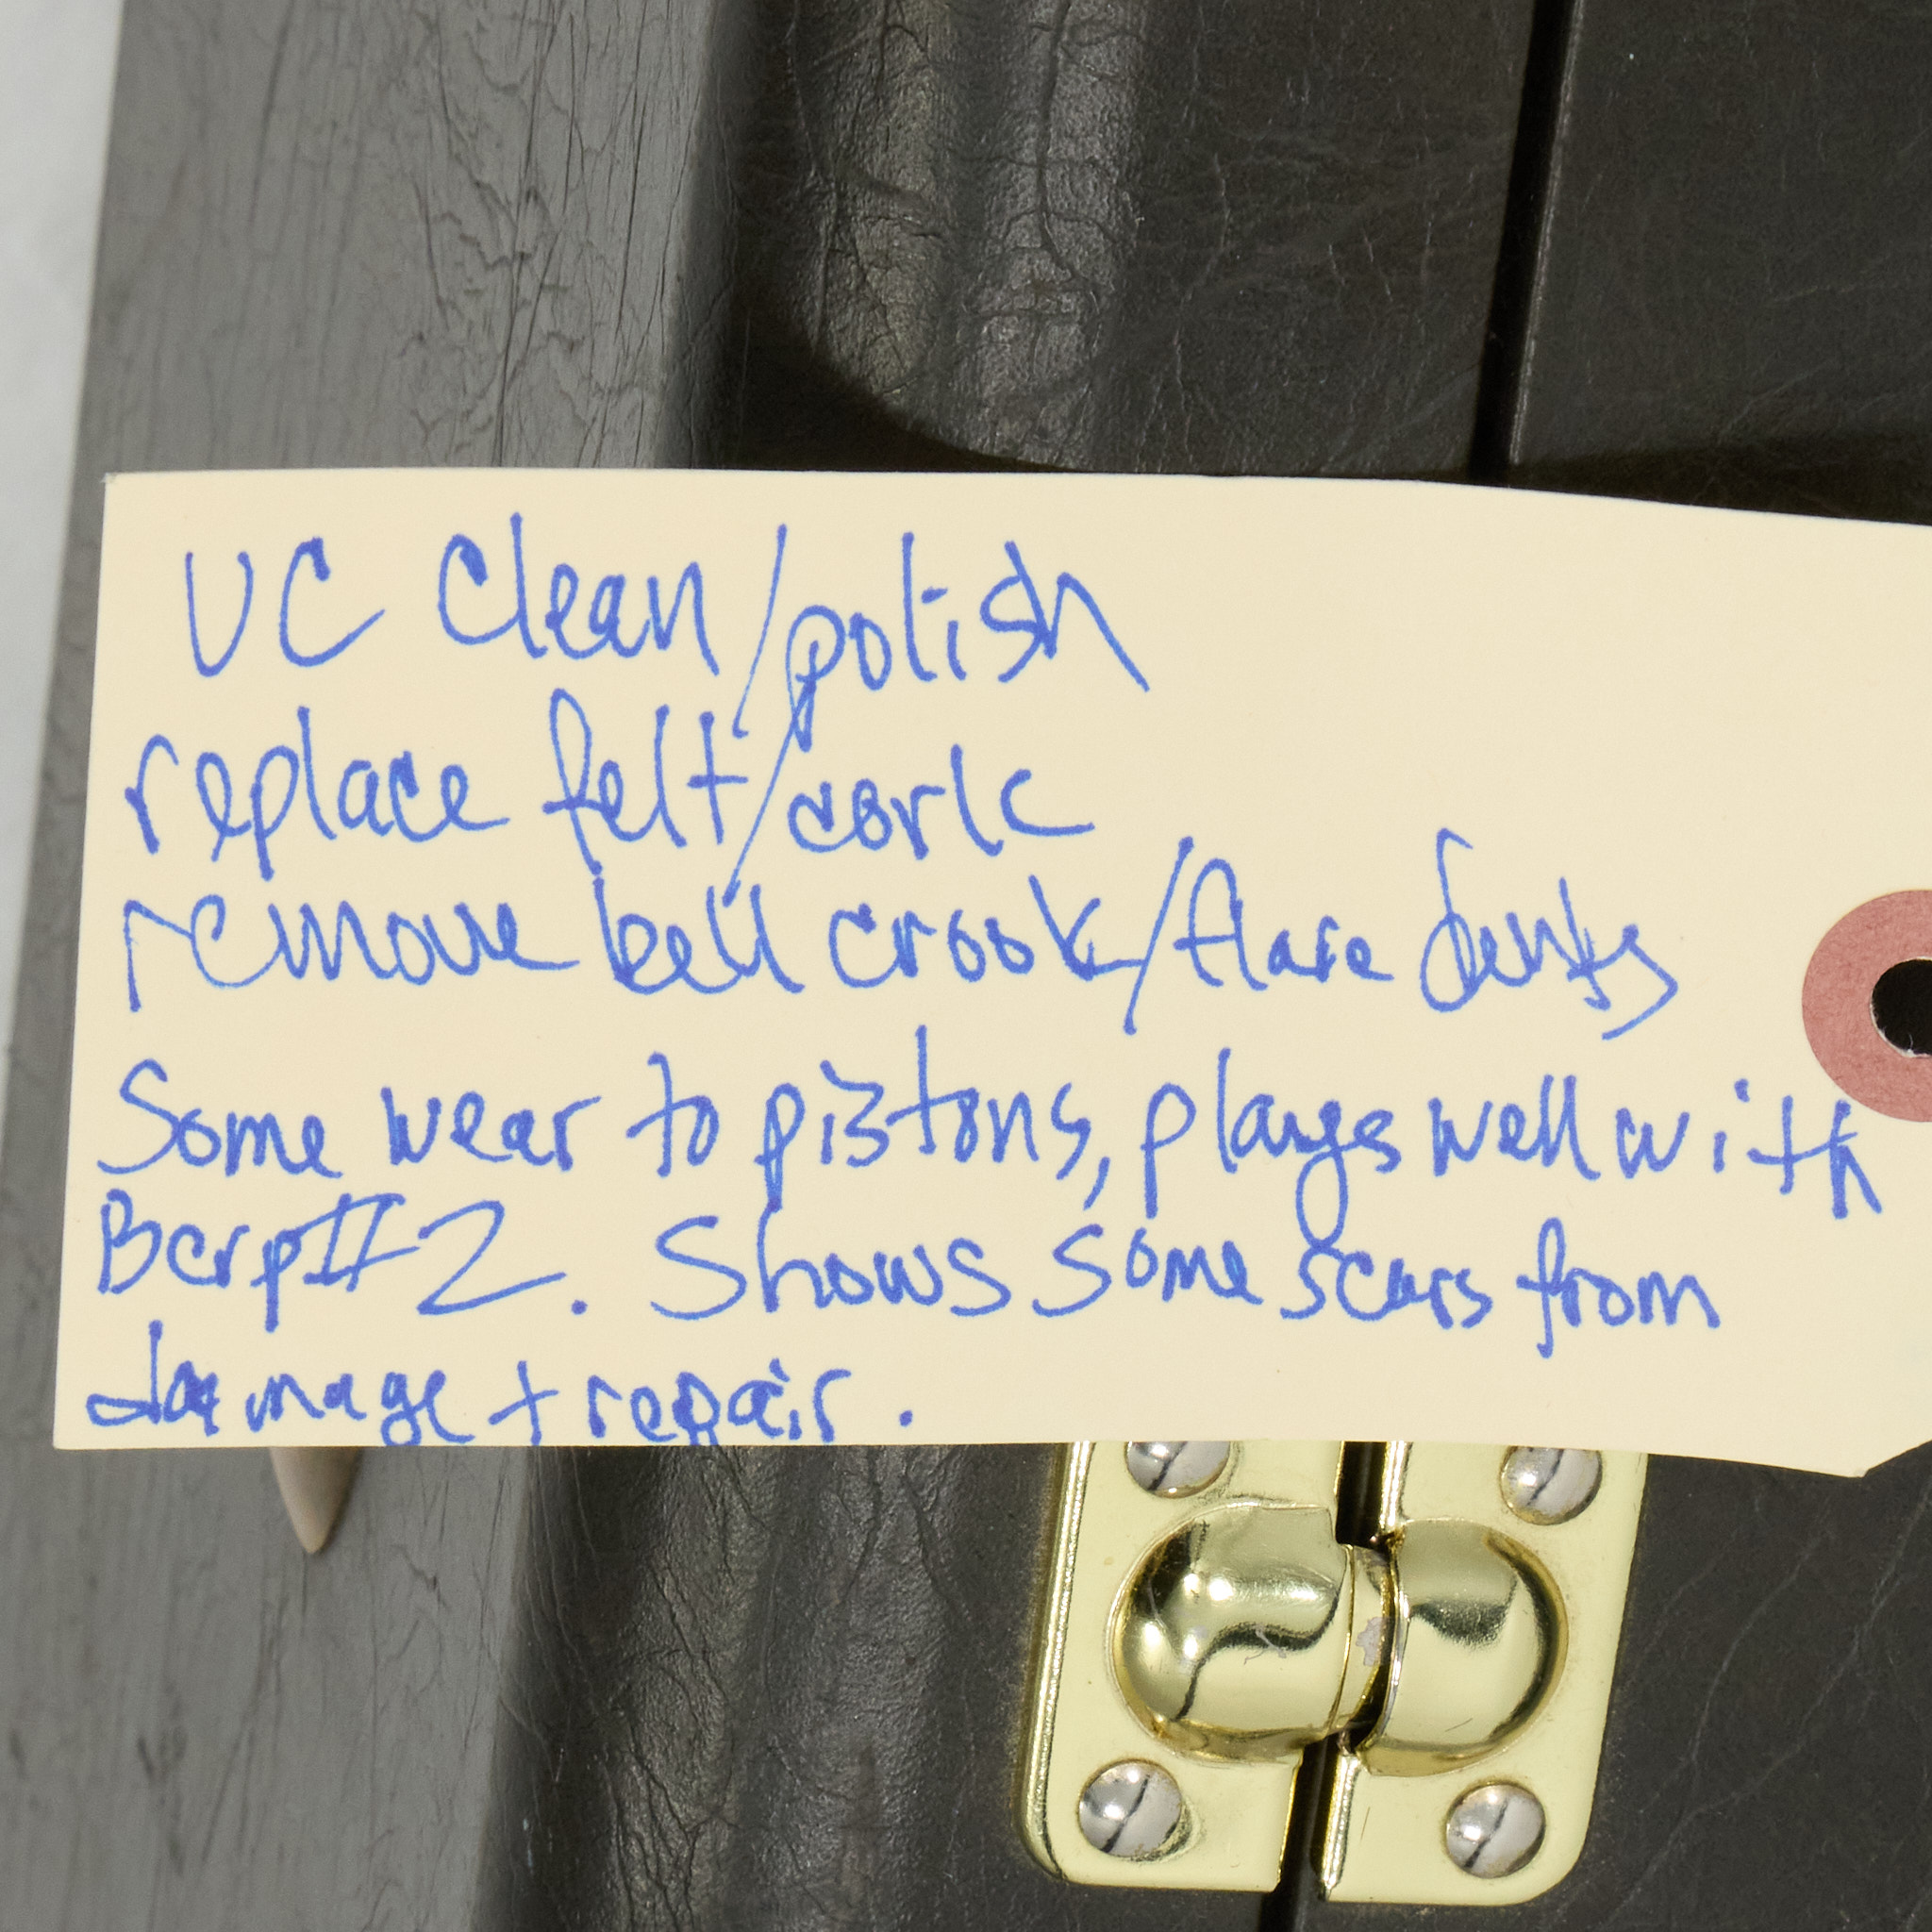 UC Clean/polish
replace felt/cork
remove bell crook/flare dents
Some wear to pistons, plays well with
Berp#2. Shows some scars from
damage + repair.